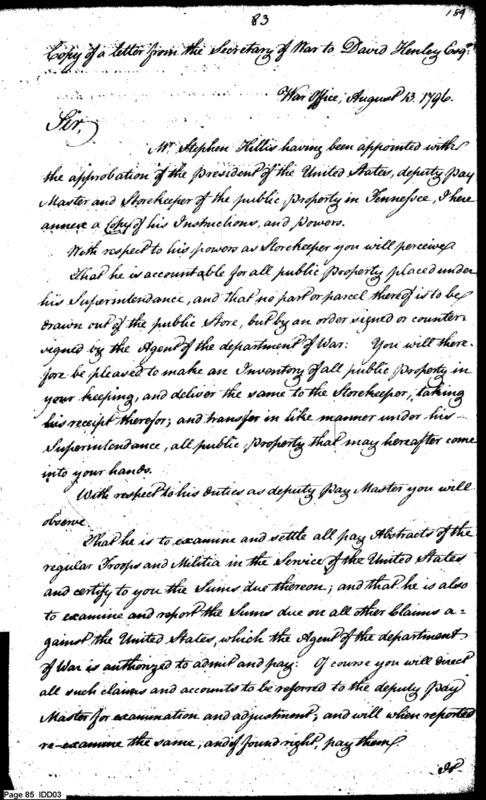 83
189
Copy of a letter from the Secretary of War to David Henley Esqr.
War Office, August 13. 1796.
Sir,
Mr. Stephen Hillis having been appointed with
the approbation of the President of the United States, deputy Pay
Master and Storekeeper of the public Property in Tennessee, I here
annex a Copy of his Instructions, and powers.
With respect to his powers as Storekeeper you will perceive
That he is accountable for all public Property placed under
his Superintendance, and that no part or parcel thereof is to be
drawn out of the public Store, but by an order signed or counter-
signed by the Agent of the department of War: You will there-
fore be pleased to make an Inventory of all public Property in
your keeping, and deliver the same to the Storekeeper, taking
his receipt therefor; and transfer in like manner under his
Superintendance, all public Property that may hereafter come
into your hands.
With respect to his duties as deputy Pay Master you will
observe
That he is to examine and settle all pay Abstracts of the
regular Troops and Militia in the Service of the United States
and certify to you the Sums due thereon; and that he is also
to examine and report the Sums due on all other Claims a-
gainst the United States, which the Agent of the department
of War is authorized to admit and pay: Of course you will direct
all such claims and accounts to be referred to the deputy Pay
Master for examination and adjustment; and will when reported
re-examine the same, and if found right, pay them.
Page 85 IDD03